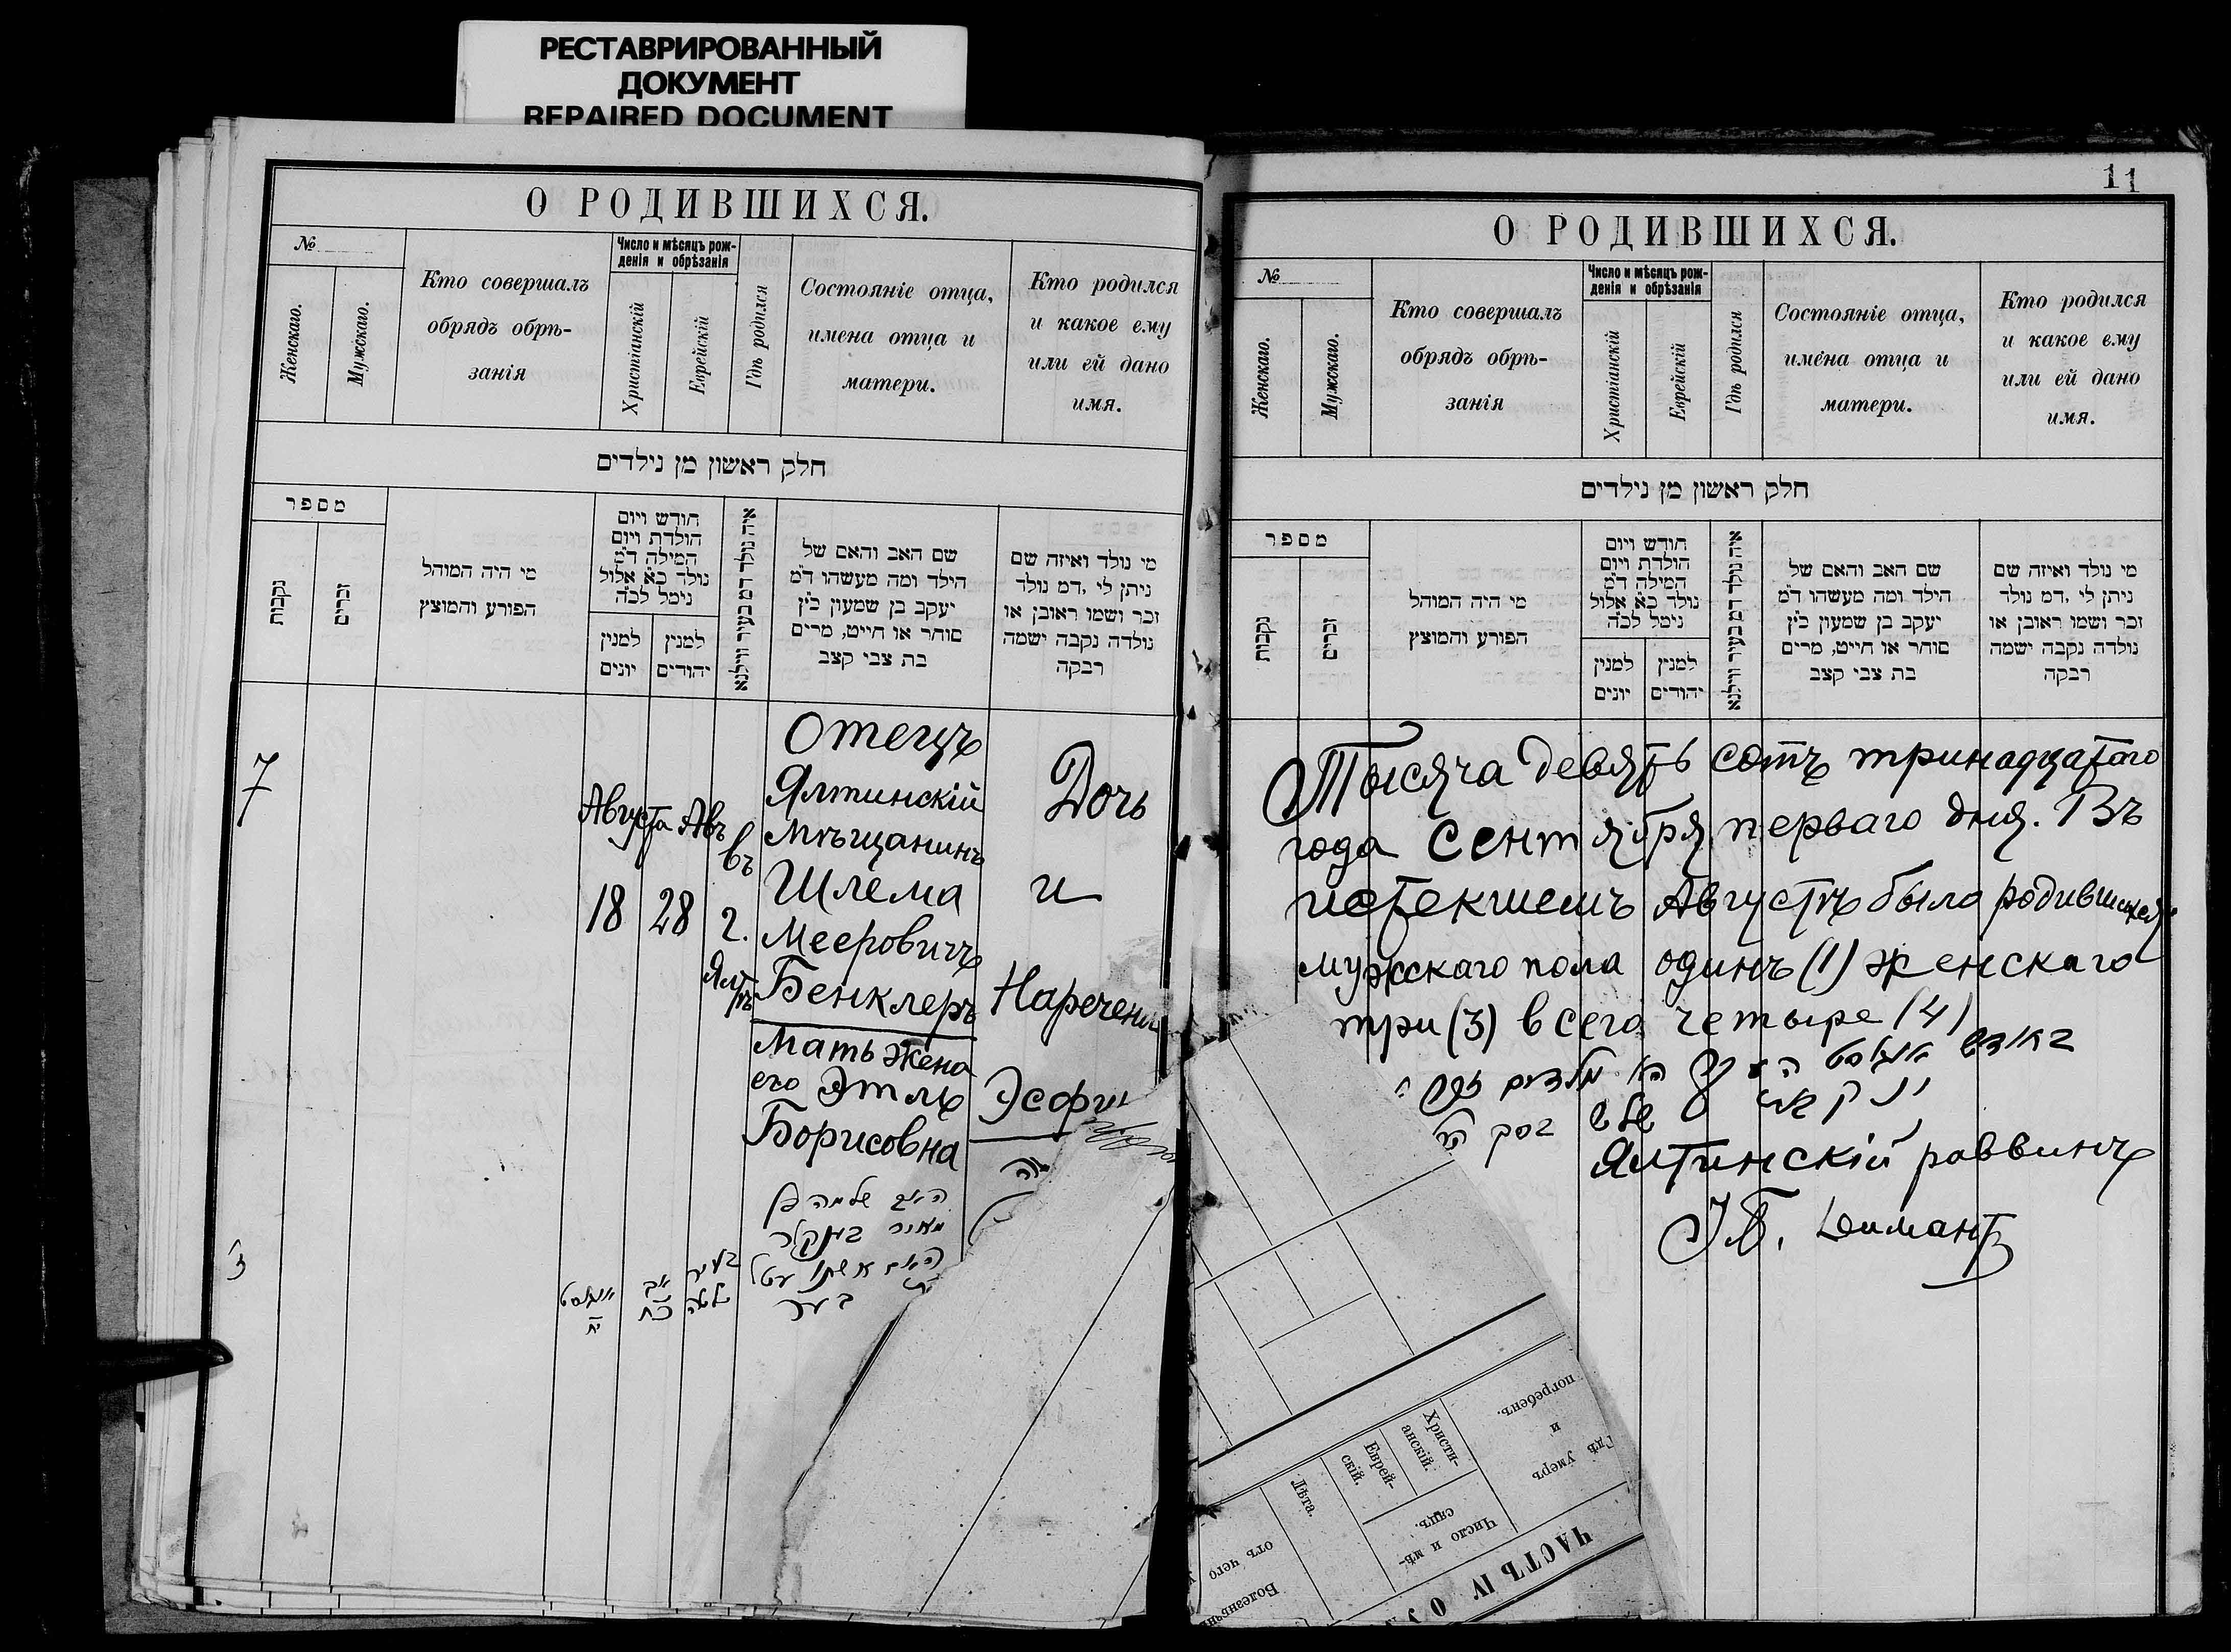 РЕСТАВРИРОВАННЫЙ
ДОКУМЕНТ
REPAIRED DOCUMENT
О РОДИВШИХСЯ.
№
Женскаго.
Мужскаго.
Кто совершалъ
обрядъ обрѣ-
занія
Число и мѣсяцъ рож-
денія и обрѣзанія
Христіанскій
Еврейскій
Гдѣ родился
Состояніе отца,
имена отца и
матери.
Кто родился
и какое ему
или ей дано
имя.
חלק ראשון מן נילדים
מספר
נקבות
זכרים
מי היה המוהל
הפורע והמוצץ
חודש ויום
הולדת ויום
המילה ד״מ
נולד כ״א אלול
נימל לכ״ה
למנין
יונים
למנין
יהודים
איה נולד דמ בעיר ווילנא
שם האב והאם של
הילד ומה מעשהו ד״מ
יעקב בן שמעון כ״ץ
סוחר או חייט, מרים
בת צבי קצב
מי נולד ואיזה שם
ניתן לי, דמ נולד
זכר ושמו ראובן או
נולדה נקבה ישמה
רבקה
7
Августа
18
Авъ
28
въ
г.
Ялтѣ
Отецъ
Ялтинскій
мѣщанинъ
Шлема
Мееровичъ
Бенклеръ
Мать жена
его Этль
Борисовна
Дочь
и
Наречена
Эсфи
3
אויגוסט
יח
אב
כח
בעיר
יאלטה
האב שלמה בן
מאיר בינקלר
האם אשתו עטל
בער
11
О РОДИВШИХСЯ.
№
Женскаго.
Мужскаго.
Кто совершалъ
обрядъ обрѣ-
занія
Число и мѣсяцъ рож-
денія и обрѣзанія
Христіанскій
Еврейскій
Гдѣ родился
Состояніе отца,
имена отца и
матери.
Кто родился
и какое ему
или ей дано
имя.
חלק ראשון מן נילדים
מספר
נקבות
זכרים
מי היה המוהל
הפורע והמוצץ
חודש ויום
הולדת ויום
המילה ד״מ
נולד כ״א אלול
נימל לכ״ה
למנין
יונים
למנין
יהודים
איה נולד דמ בעיר ווילנא
שם האב והאם של
הילד ומה מעשהו ד״מ
יעקב בן שמעון כ״ץ
סוחר או חייט, מרים
בת צבי קצב
מי נולד ואיזה שם
ניתן לי, דמ נולד
זכר ושמו ראובן או
נולדה נקבה ישמה
רבקה
Тысяча девять сотъ тринадцатаго
года Сентября перваго дня. Въ
истекшемъ Августѣ было родившихся
мужскаго пола одинъ (1) женскаго
три (3) всего четыре (4)
Ялтинскій раввинъ
І Б. Димантъ
ЧАСТЬ IV О У
Гдѣ умеръ
и
погребенъ.
Число и мѣ-
сяцъ.
Христі-
анскій.
Еврей-
скій.
Лѣта.
Болезнь
отъ чего